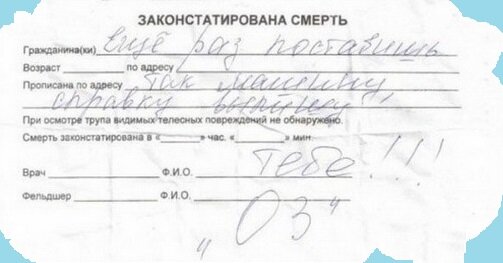 ЗАКОНСТАТИРОВАНА СМЕРТЬ
Гражданина(ки) ещё раз поставишь
Возраст по адресу
Прописана по адресу так машину,
справку выпишу
При осмотре трупа видимых телесных повреждений не обнаружено.
Смерть законстатирована в « » час. « » мин.
тебе!!!
Врач Ф.И.О.
Фельдшер Ф.И.О.
"ОЗ"